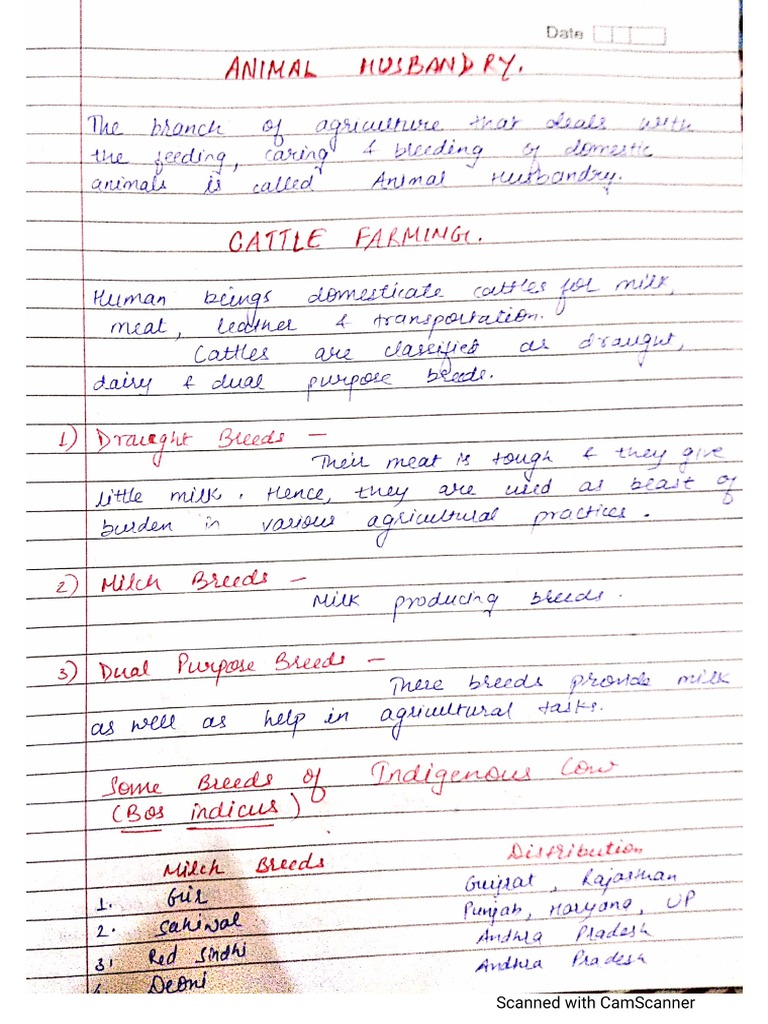 Date
ANIMAL HUSBANDRY.
The branch of agriculture that deals with
the feeding, caring & breeding of domestic
animals is called Animal Husbandry.
CATTLE FARMING.
Human beings domesticate cattles for milk,
meat, leather & transportation.
Cattles are classified as draught,
dairy & dual purpose breeds.
1) Draught Breeds —
Their meat is tough & they give
little milk. Hence, they are used as beast of
burden in various agricultural practices.
2) Milch Breeds —
Milk producing breeds.
3) Dual Purpose Breeds —
These breeds provide milk
as well as help in agricultural tasks.
Some Breeds of Indigenous Cow
(Bos indicus)
Milch Breeds Distribution
1. Gir Gujrat, Rajasthan
2. Sahiwal Punjab, Haryana, UP
3. Red Sindhi Andhra Pradesh
4. Deoni Andhra Pradesh
Scanned with CamScanner